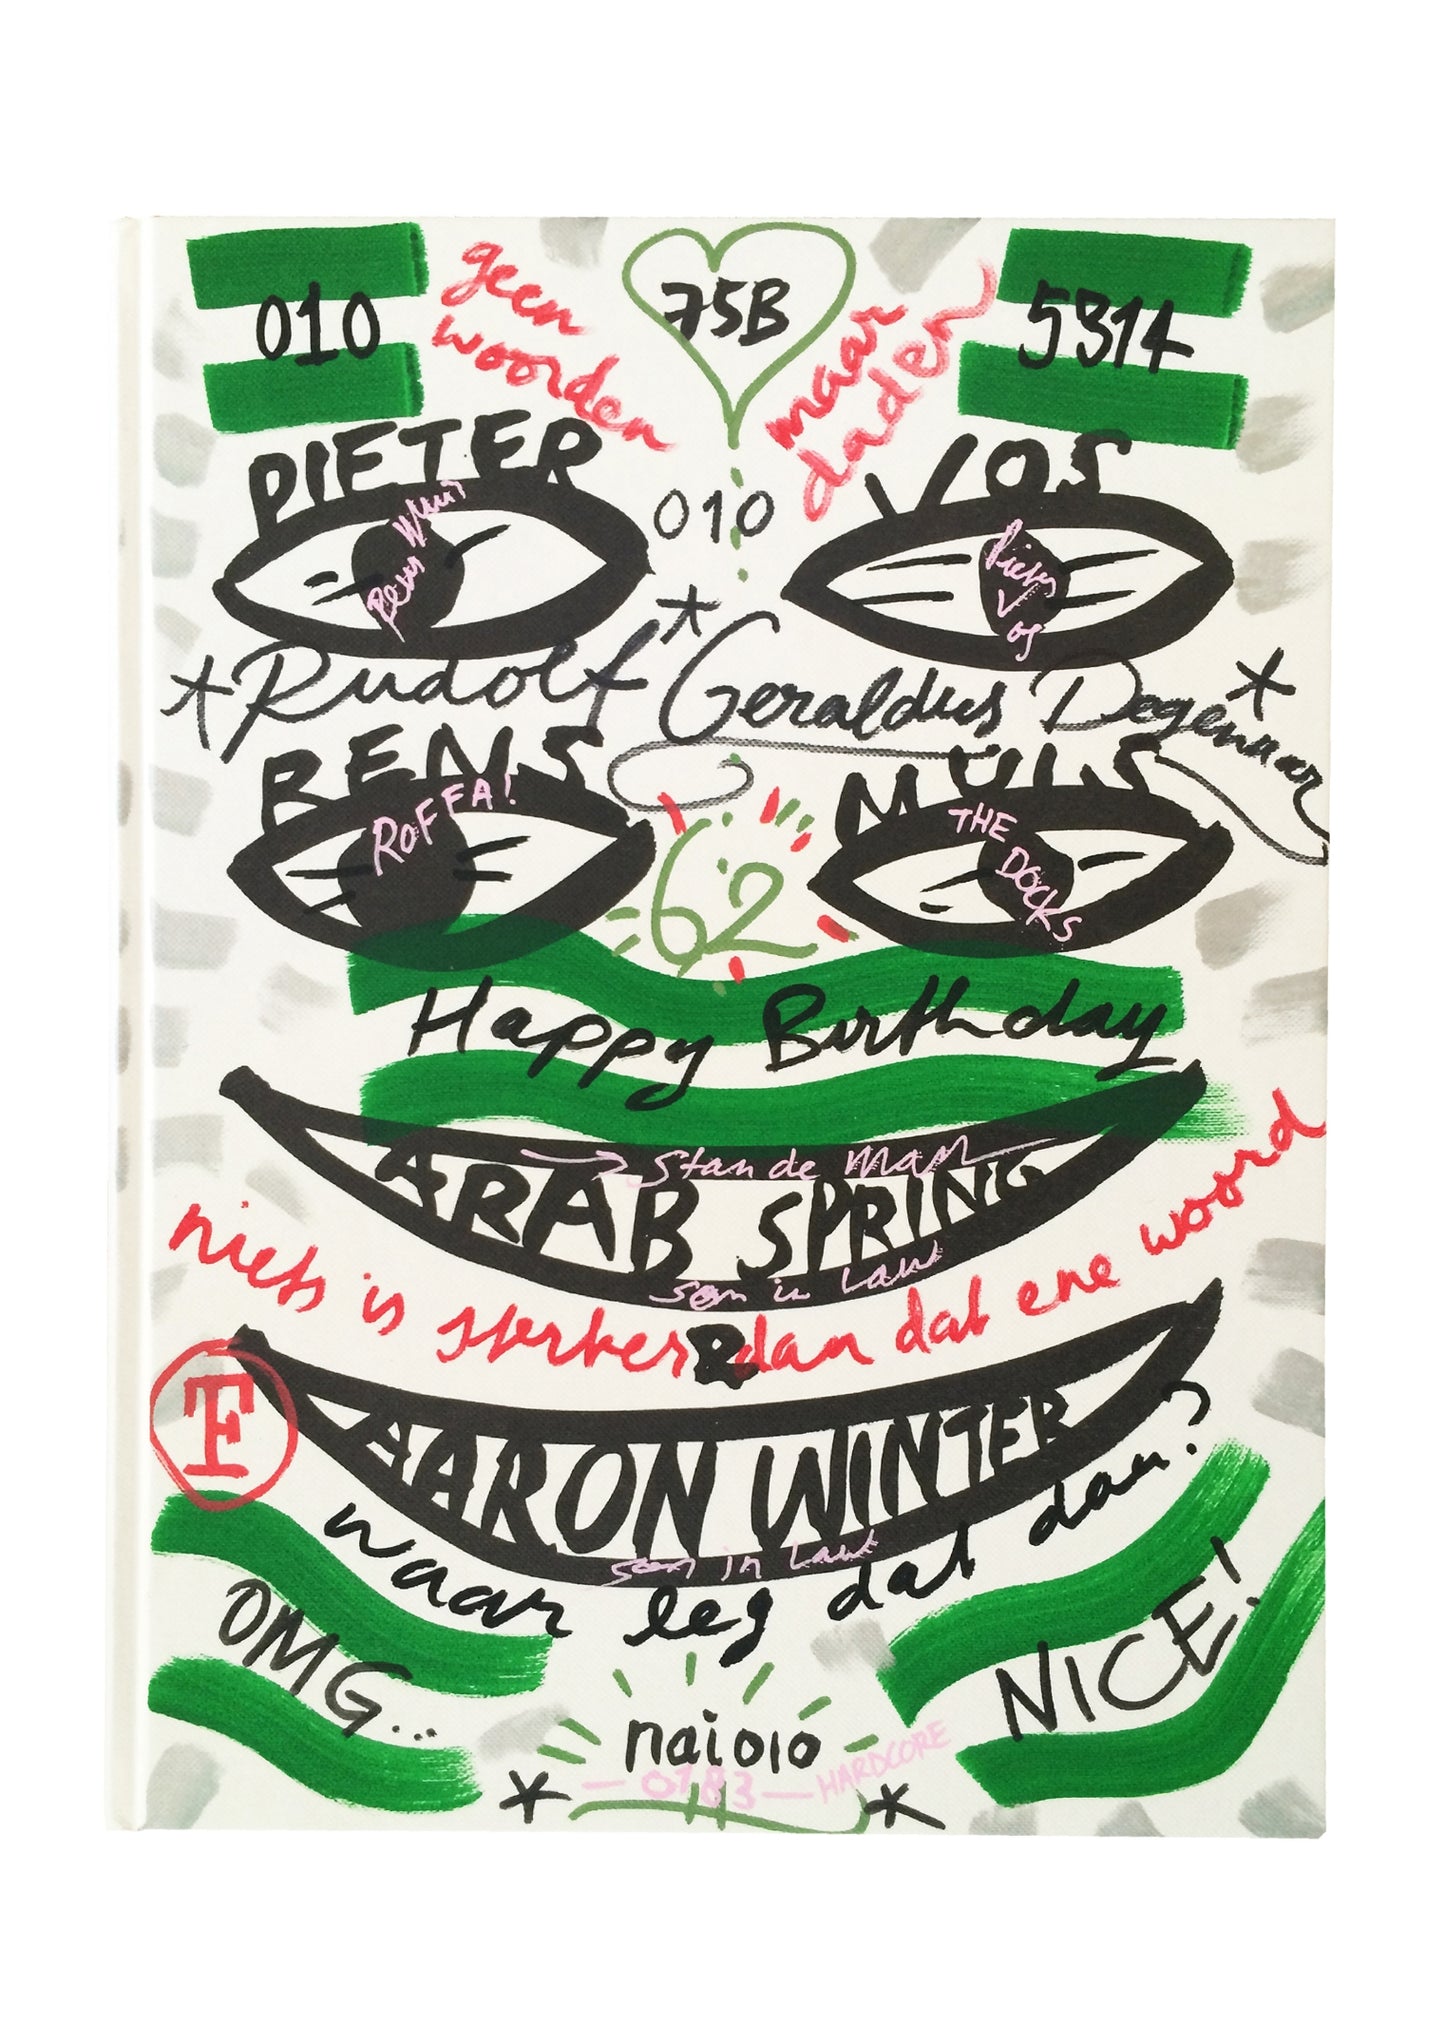 010
geen
woorden
75B
maar
daden
5314
PIETER
010
VOS
Bens Muis
Pieter
Vos
Rudolf Geraldus Degenaar
BENS
MUIS
ROFFA!
62
THE
DOCKS
Happy Birthday
Stan de Man
ARAB SPRING
son in Law
niets is sterker dan dat ene woord
&
TF
AARON WINTER
son in Law
waar leg dat dan?
OMG...
NICE!
nai010
—0183—HARDCORE